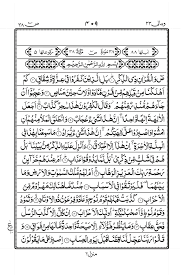 ص ٣٨
٤٠٩
وما لی ٢٣
بِسْمِ اللّٰهِ الرَّحْمٰنِ الرَّحِيْمِ
صٓ وَالْقُرْاٰنِ ذِي الذِّكْرِ بَلِ الَّذِيْنَ كَفَرُوْا فِيْ عِزَّةٍ وَّشِقَاقٍ كَمْ
اَهْلَكْنَا مِنْ قَبْلِهِمْ مِّنْ قَرْنٍ فَنَادَوْا وَّلَاتَ حِيْنَ مَنَاصٍ وَعَجِبُوْٓا اَنْ
جَآءَهُمْ مُّنْذِرٌ مِّنْهُمْ وَقَالَ الْكٰفِرُوْنَ هٰذَا سٰحِرٌ كَذَّابٌ اَجَعَلَ
الْاٰلِهَةَ اِلٰهًا وَّاحِدًا اِنَّ هٰذَا لَشَيْءٌ عُجَابٌ وَانْطَلَقَ الْمَلَاُ مِنْهُمْ
اَنِ امْشُوْا وَاصْبِرُوْا عَلٰٓى اٰلِهَتِكُمْ اِنَّ هٰذَا لَشَيْءٌ يُّرَادُ مَا سَمِعْنَا بِهٰذَا
فِي الْمِلَّةِ الْاٰخِرَةِ اِنْ هٰذَآ اِلَّا اخْتِلَاقٌ ءَاُنْزِلَ عَلَيْهِ الذِّكْرُ مِنْ بَيْنِنَا بَلْ
هُمْ فِيْ شَكٍّ مِّنْ ذِكْرِيْ بَلْ لَّمَّا يَذُوْقُوْا عَذَابِ اَمْ عِنْدَهُمْ خَزَآئِنُ
رَحْمَةِ رَبِّكَ الْعَزِيْزِ الْوَهَّابِ اَمْ لَهُمْ مُّلْكُ السَّمٰوٰتِ وَالْاَرْضِ
وَمَا بَيْنَهُمَا فَلْيَرْتَقُوْا فِي الْاَسْبَابِ جُنْدٌ مَّا هُنَالِكَ مَهْزُوْمٌ مِّنَ
الْاَحْزَابِ كَذَّبَتْ قَبْلَهُمْ قَوْمُ نُوْحٍ وَّعَادٌ وَّفِرْعَوْنُ ذُو الْاَوْتَادِ
وَثَمُوْدُ وَقَوْمُ لُوْطٍ وَّاَصْحٰبُ لْئَيْكَةِ اُولٰٓئِكَ الْاَحْزَابُ اِنْ كُلٌّ اِلَّا كَذَّبَ الرُّسُلَ
فَحَقَّ عِقَابِ وَمَا يَنْظُرُ هٰٓؤُلَآءِ اِلَّا صَيْحَةً وَّاحِدَةً مَّا لَهَا مِنْ فَوَاقٍ
وَقَالُوْا رَبَّنَا عَجِّلْ لَّنَا قِطَّنَا قَبْلَ يَوْمِ الْحِسَابِ اِصْبِرْ عَلٰى مَا يَقُوْلُوْنَ
منزل ٦